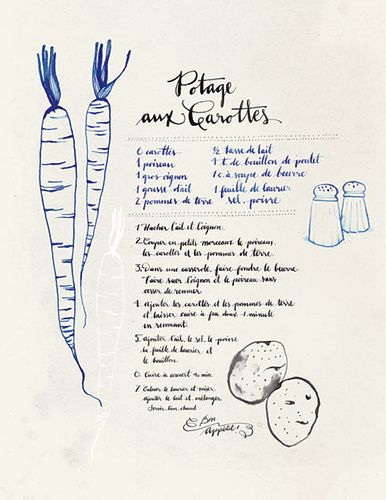 Potage
aux Carottes
6 carottes
1 poireau
1 gros oignon
1 gousse d'ail
2 pommes de terre
½ tasse de lait
1 t. de bouillon de poulet
1 c. à soupe de beurre
1 feuille de laurier
sel. poivre
1. Hacher l'ail et l'oignon.
2. Couper en petits morceaux le poireau,
les carottes et les pommes de terre.
3. Dans une casserole, faire fondre le beurre
Faire suer l'oignon et le poireau sans
cesser de remuer.
4. ajouter les carottes et les pommes de terre
et laisser cuire à feu doux 1 minute
en remuant.
5. ajouter l'ail, le sel, le poivre
la feuille de laurier et
le bouillon.
6. Cuire à couvert min.
7. Enlever le laurier et mixer.
Ajouter le lait et mélanger
Servir bien chaud
Bon
appétit!